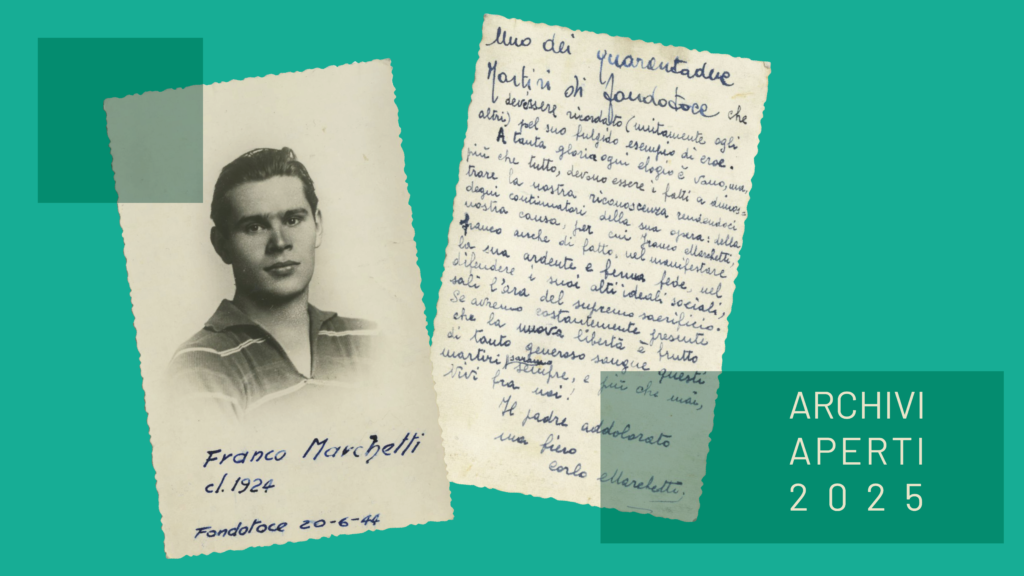 Franco Marchetti
cl. 1924
Fondotoce 20-6-44
Uno dei quarantadue
Martiri di Fondotoce che
dev'essere ricordato (unitamente agli
altri) pel suo fulgido esempio di eroe.
A tanta gloria ogni elogio è vano, ma,
più che tutto, devono essere i fatti a dimos=
trare la nostra riconoscenza rendendoci
degni continuatori della sua opera: della
nostra causa, per cui Franco Marchetti,
franco anche di fatto, nel manifestare
la sua ardente e ferma fede, nel
difendere i suoi alti ideali sociali,
salì l'ara del supremo sacrificio.
Se avremo costantemente presente
che la nuova libertà è frutto
di tanto generoso sangue questi
martiri saranno sempre, e più che mai,
vivi fra noi!
Il padre addolorato
ma fiero
Carlo Marchetti.
ARCHIVI
APERTI
2025